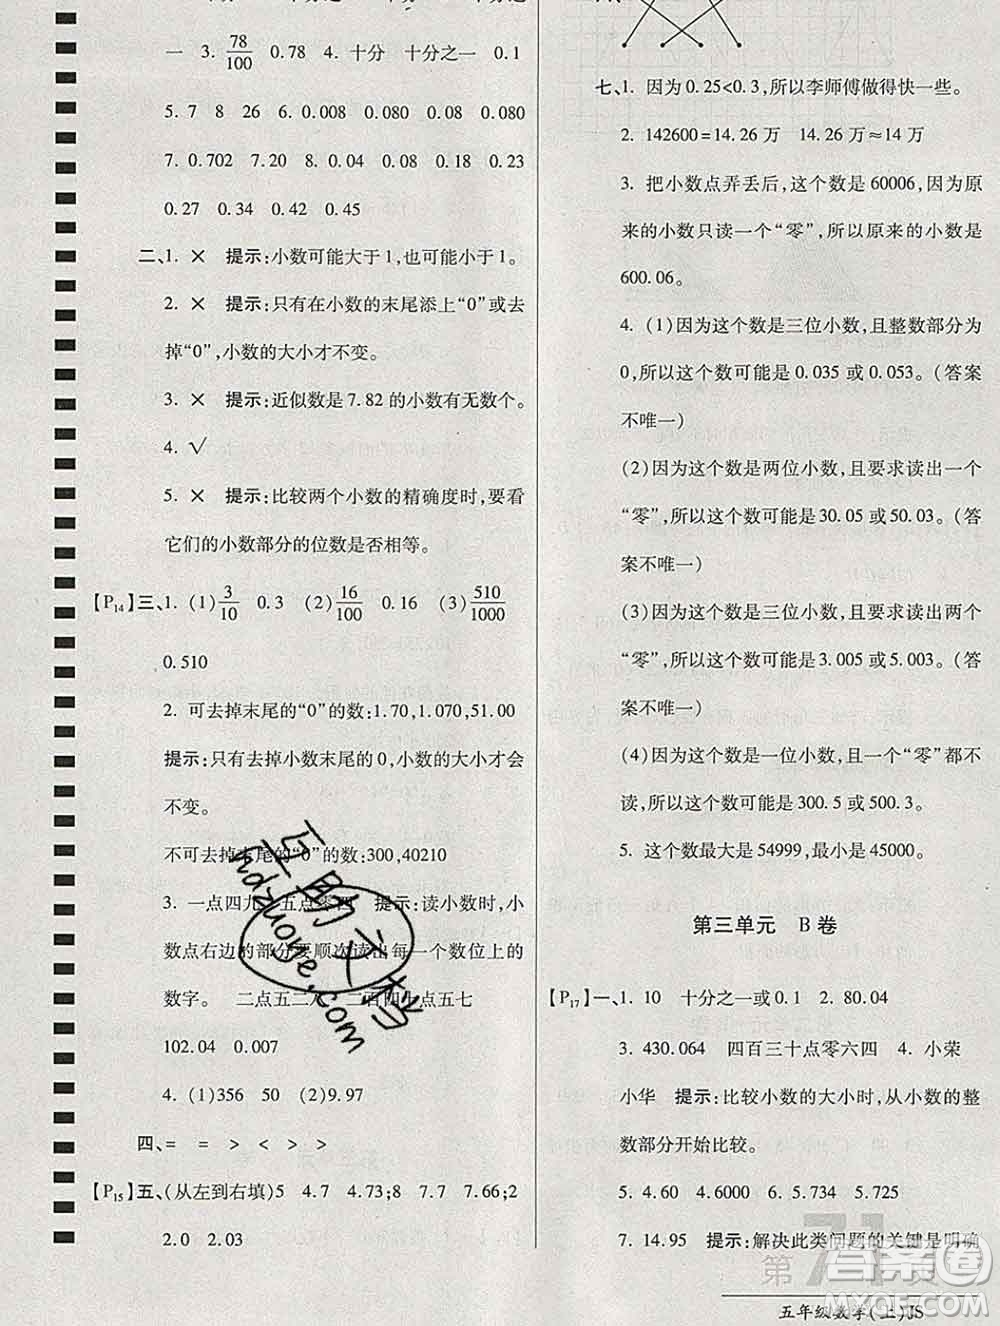 一 3. 78/100 0.78 4. 十分 十分之一 0.1
5. 7 8 26 6. 0.008 0.080 0.08 0.080
7. 0.702 7.20 8. 0.15 0.18 0.23
0.27 0.34 0.42 0.45
二、1. × 提示:小数可能大于1,也可能小于1。
2. × 提示:只有在小数的末尾添上“0”或去
掉“0”,小数的大小才不变。
3. × 提示:近似数是7.82的小数有无数个。
4. √
5. × 提示:比较两个小数的精确度时,要看
它们的小数部分的位数是否相等。
【P14】三、1. (1)3/10 0.3 (2)16/100 0.16 (3)510/1000
0.510
2. 可去掉末尾的“0”的数:1.70,1.070,51.00
提示:只有去掉小数末尾的0,小数的大小才会
不变。
不可去掉末尾的“0”的数:300,40210
3. 一点四九 五点零四 提示:读小数时,小
数点右边的部分要顺次读出每一个数位上的
数字。 二点五二六 二百四十点五七
102.04 0.007
4. (1)356 50 (2)9.97
四、= = > < > >
【P15】五、(从左到右填)5 4.7 4.73;8 7.7 7.66;2
2.0 2.03
七、1. 因为0.25<0.3,所以李师傅做得快一些。
2. 142600=14.26万 14.26万≈14万
3. 把小数点弄丢后,这个数是60006,因为原
来的小数只读一个“零”,所以原来的小数是
600.06。
4. (1)因为这个数是三位小数,且整数部分为
0,所以这个数可能是0.035或0.053。(答案
不唯一)
(2)因为这个数是两位小数,且要求读出一个
“零”,所以这个数可能是30.05或50.03。(答
案不唯一)
(3)因为这个数是三位小数,且要求读出两个
“零”,所以这个数可能是3.005或5.003。(答
案不唯一)
(4)因为这个数是一位小数,且一个“零”都不
读,所以这个数可能是300.5或500.3。
5. 这个数最大是54999,最小是45000。
第三单元 B卷
【P17】一、1. 10 十分之一或0.1 2. 80.04
3. 430.064 四百三十点零六四 4. 小荣
小华 提示:比较小数的大小时,从小数的整
数部分开始比较。
5. 4.60 4.6000 6. 5.734 5.725
7. 14.95 提示:解决此类问题的关键是明确
第71页
五年级数学(上)JS
互助文档
hdzuoye.com
答案圈